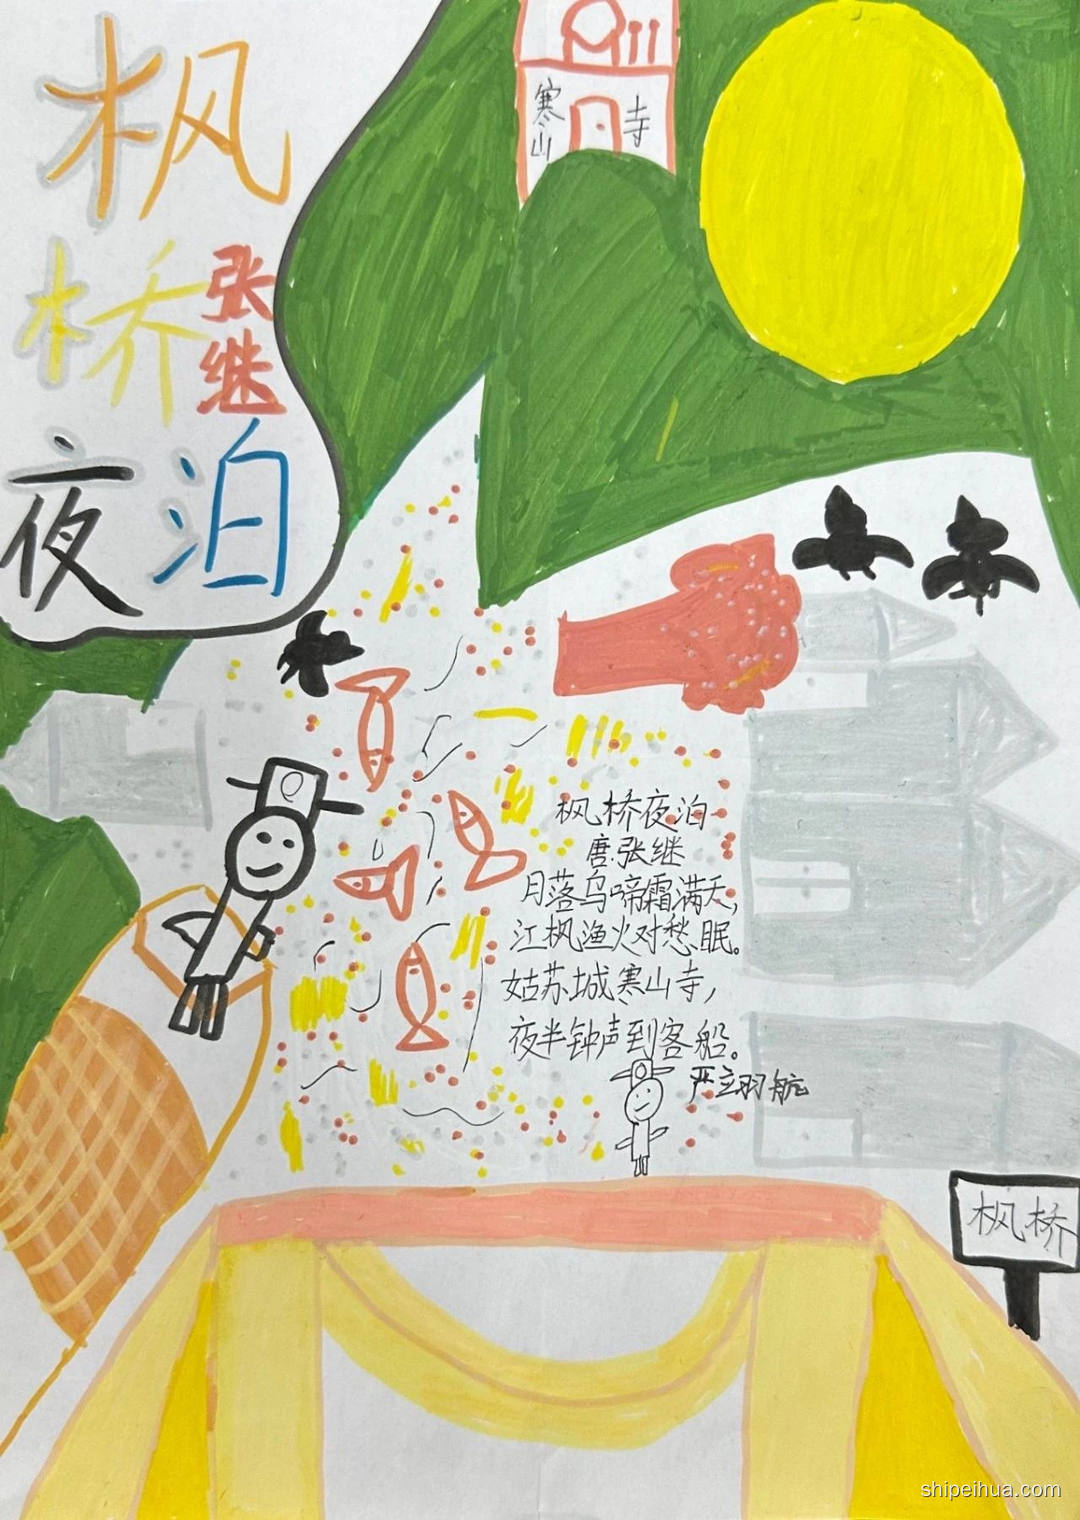 枫
桥
夜泊
张继
寒山寺
枫桥夜泊
唐.张继
月落乌啼霜满天,
江枫渔火对愁眠。
姑苏城寒山寺,
夜半钟声到客船。
严立羽航
枫桥
shipeihua.com